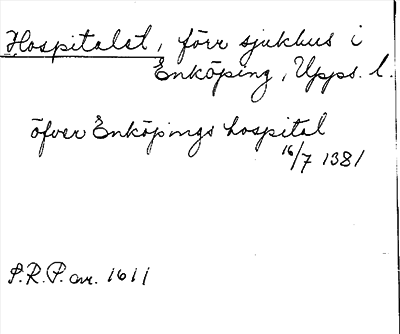 Hospitalet, förr sjukhus i
Enköping, Upps. l.
öfver Enköpings hospital
16/7 1381
S.R.P. nr. 1611